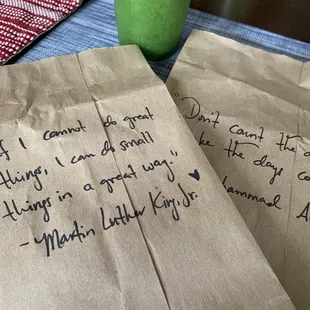 If I cannot do great
things, I can do small
things in a great way."
- Martin Luther King, Jr.
"Don't count the
the days